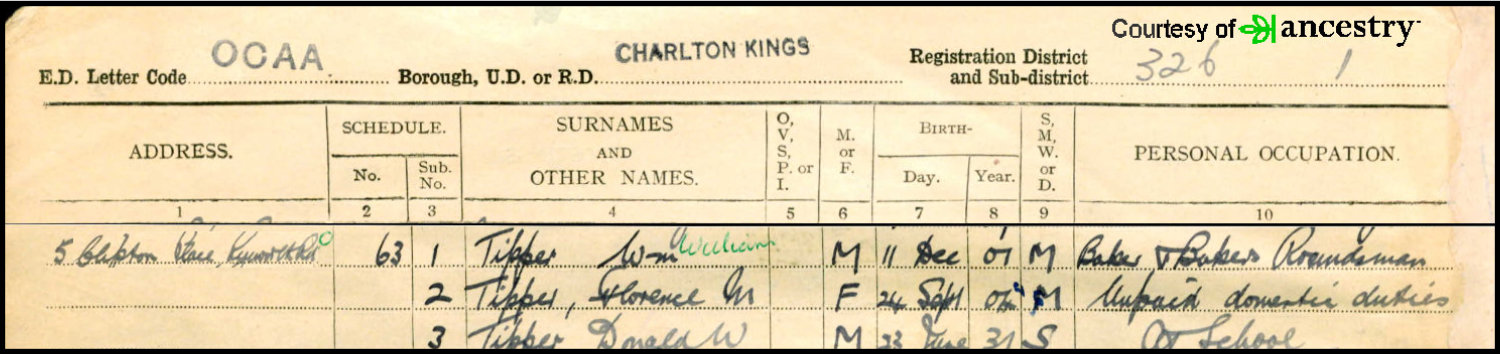 Courtesy of ancestry
OCAA
CHARLTON KINGS
326 1
E.D. Letter Code Borough, U.D. or R.D. Registration District and Sub-district
ADDRESS. SCHEDULE. No. Sub. No. SURNAMES AND OTHER NAMES. O, V, S, P. or I. M. or F. BIRTH- Day. Year. S, M, W. or D. PERSONAL OCCUPATION.
1 2 3 4 5 6 7 8 9 10
5 63 1 Tipper Wm William M 11 Dec 01 M Baker & Bakers Roundsman
2 Tipper, Florence M F 24 Sept M Unpaid domestic duties
3 Tipper Donald W M 23 June 31 S At School